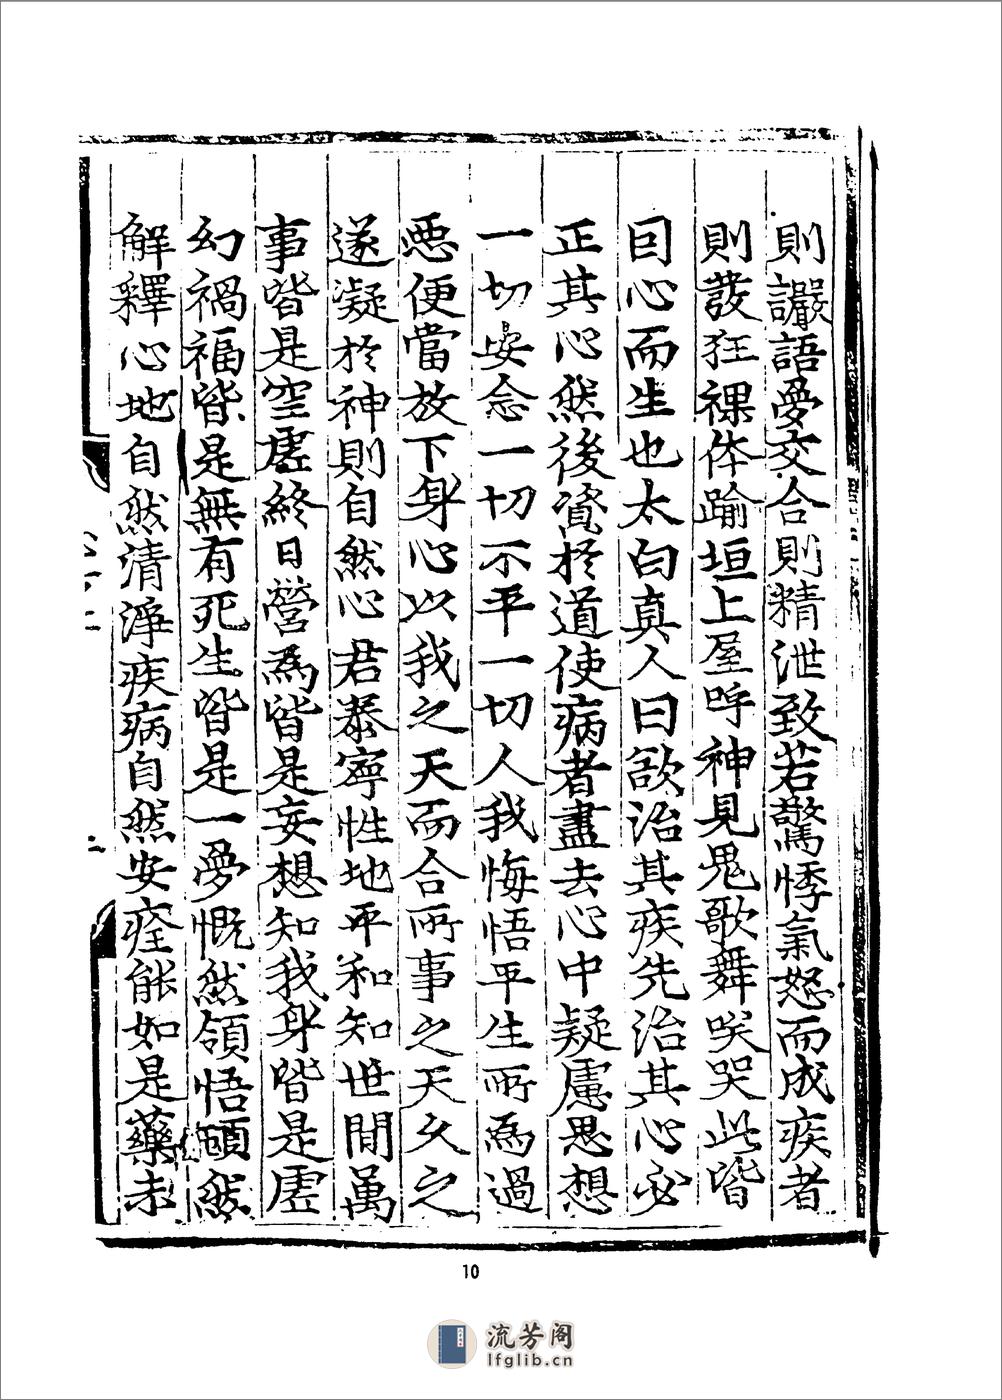 則讝語夢交合則精泄致若驚悸氣怒而成疾者
則發狂裸体踰垣上屋呼神見鬼歌舞笑哭此皆
因心而生也太白真人曰欲治其疾先治其心必
正其心然後資於道使病者盡去心中疑慮思想
一切妄念一切不平一切人我悔悟平生所為過
惡便當放下身心以我之天而合所事之天久之
遂凝於神則自然心君泰寧性地平和知世間萬
事皆是空虛終日營為皆是妄想知我身皆是虛
幻禍福皆是無有死生皆是一夢慨然領悟頓然
解釋心地自然清淨疾病自然安痊能如是藥未
10
流芳阁
lfglib.cn